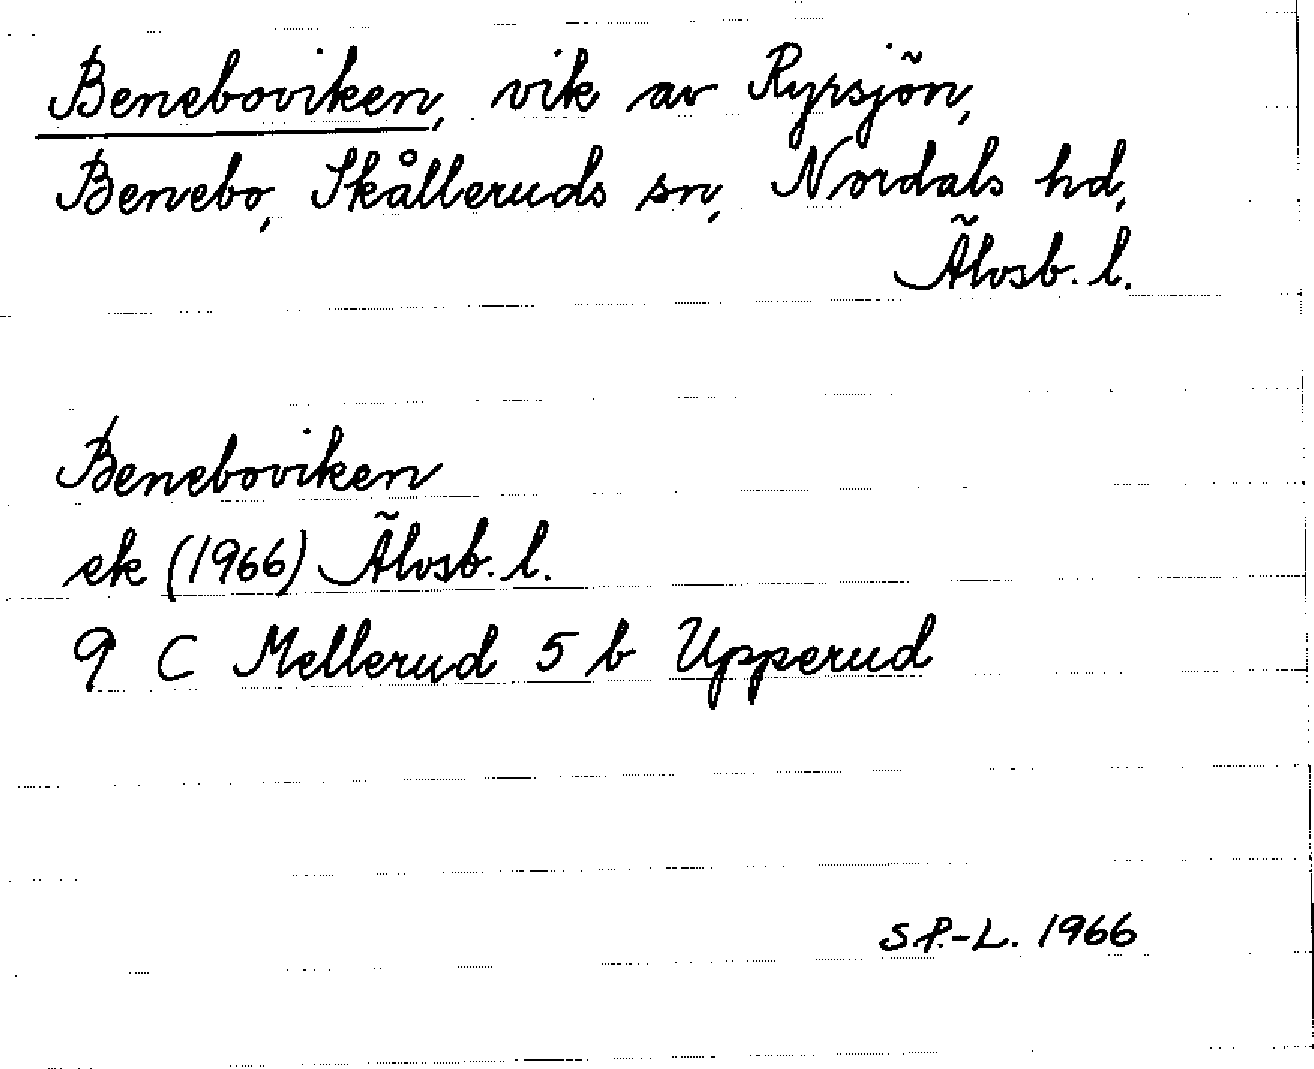 Beneboviken, vik av Ryrsjön,
Benebo, Skålleruds sn, Nordals hd,
Älvsb. l.
Beneboviken
ek (1966) Älvsb. l.
9 C Mellerud 5 b Upperud
S P.-L. 1966